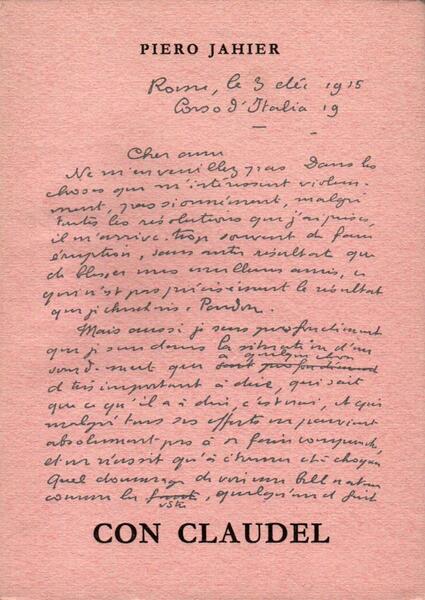 PIERO JAHIER
Rome, le 3 déc 1915
Corso d'Italia 19
Cher ami
Ne m'en veuillez pas. Dans les
choses qui m'intéressent violem-
ment, passionnément, malgré
toutes les résolutions que j'ai prises,
il m'arrive trop souvent de faire
éruption, sans autre résultat que
de blesser mes meilleurs amis, ce
qui n'est pas précisément le résultat
que je cherchais. Pardon.
Mais aussi je sens profondément
que je suis dans la situation d'un
sourd-muet qui a quelque chose
d très important à dire, qui sait
que ce qu'il a à dire, c'est vrai, et qui
malgré tous ses efforts ne parvient
absolument pas à se faire comprendre
et ne réussit qu'à étonner et à choquer
Quel dommage de voir une belle nature
comme la vôtre, quelqu'un d fait
CON CLAUDEL